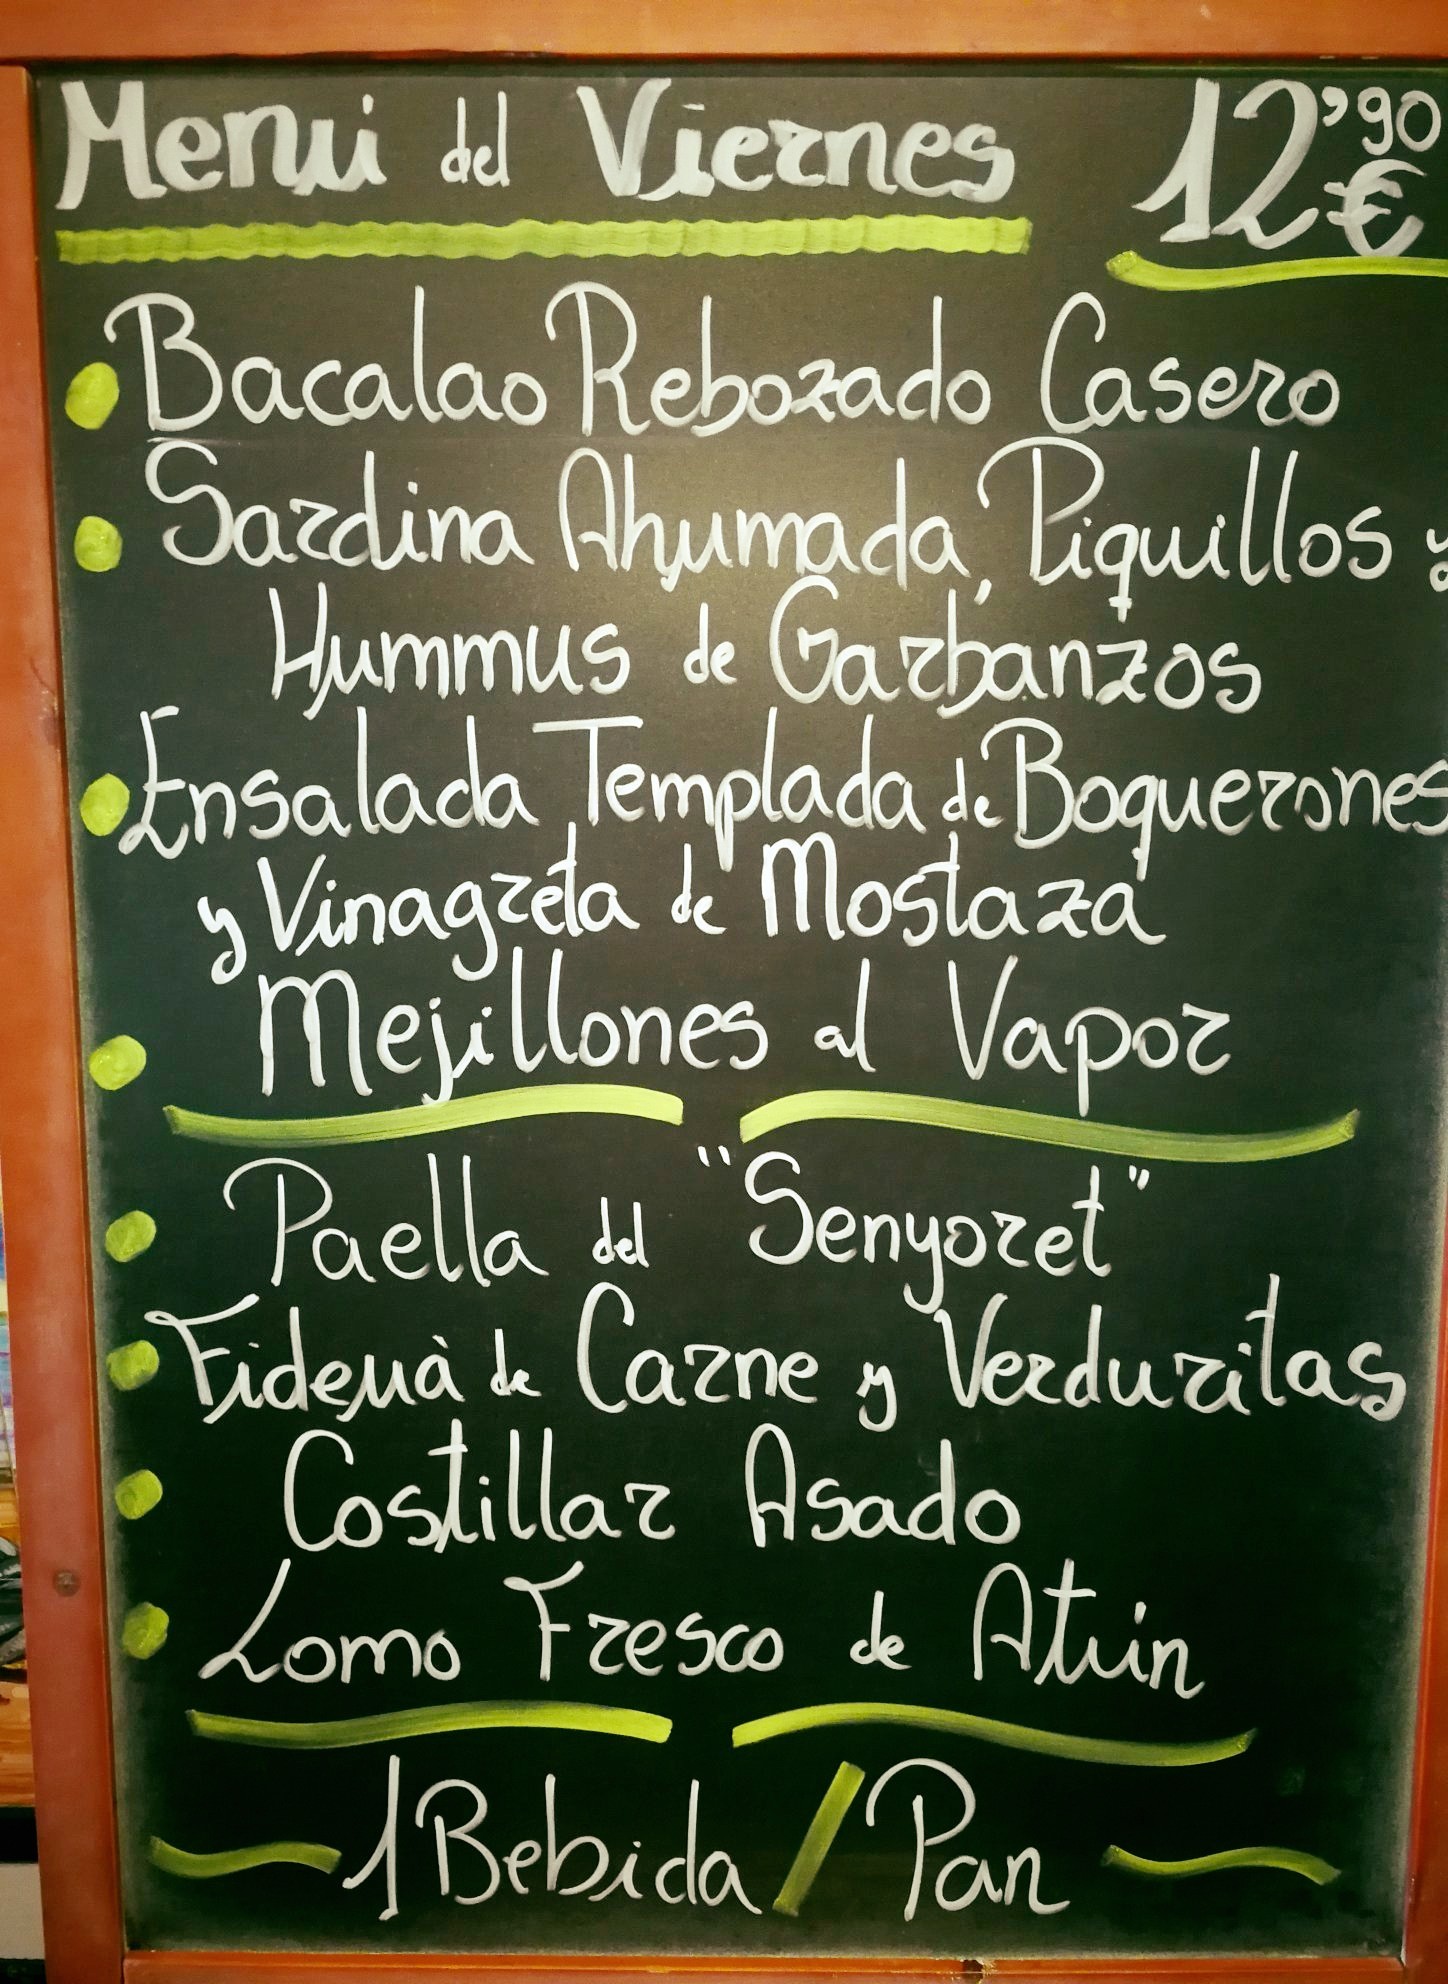 Menú del Viernes 12'90 €
Bacalao Rebozado Casero
Sardina Ahumada, Piquillos y
Hummus de Garbanzos
Ensalada Templada de Boquerones
y Vinagreta de Mostaza
Mejillones al Vapor
Paella del "Senyoret"
Fideuà de Carne y Verduritas
Costillar Asado
Lomo Fresco de Atún
1 Bebida / Pan